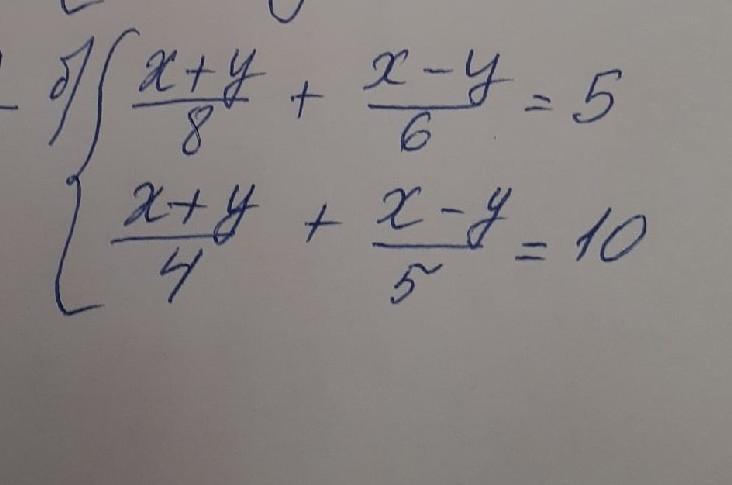 б) { (x+y)/8 + (x-y)/6 = 5
(x+y)/4 + (x-y)/5 = 10